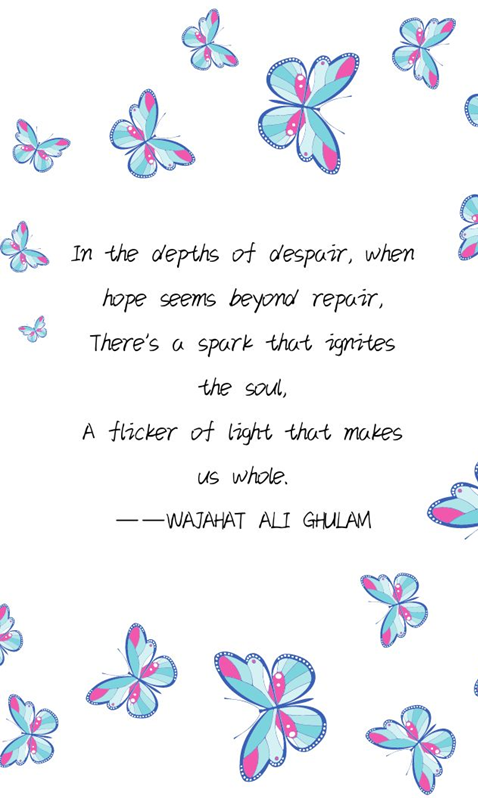 In the depths of despair, when
hope seems beyond repair,
There's a spark that ignites
the soul,
A flicker of light that makes
us whole.
——WAJAHAT ALI GHULAM